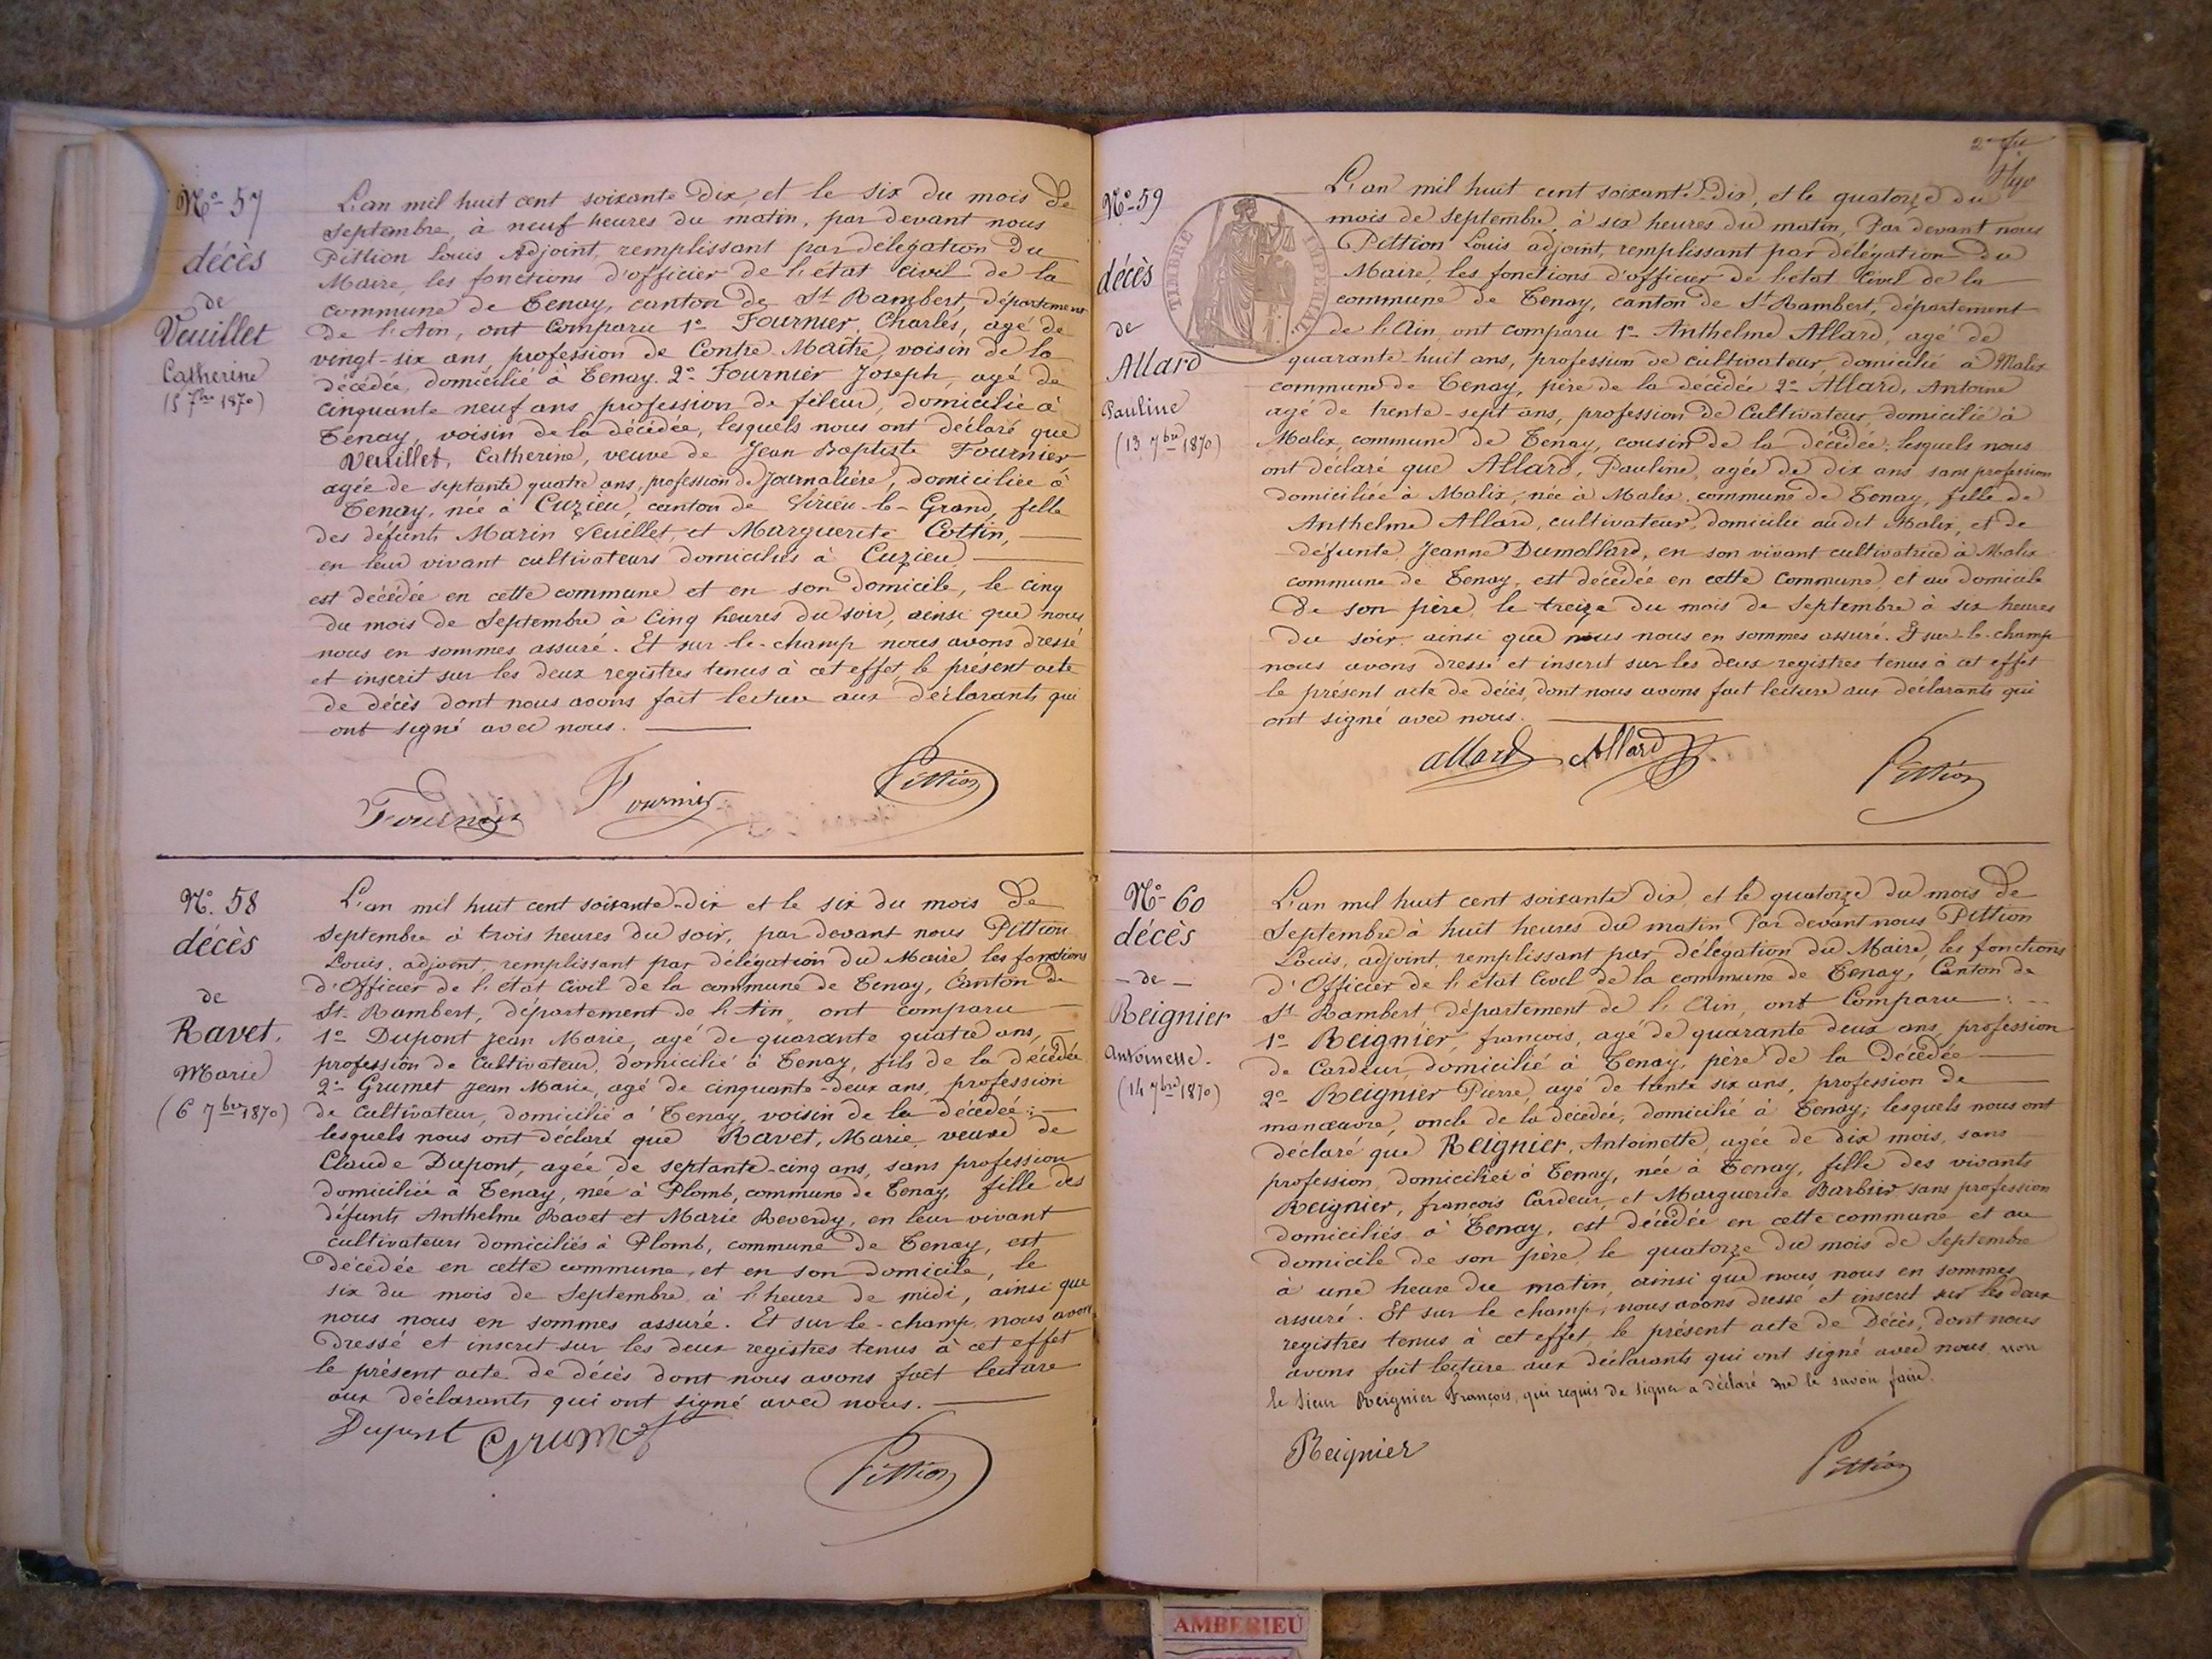 N° 57
décès
de
Veuillet
Catherine
(5 7bre 1870)
L'an mil huit cent soixante Dix, et le six du mois de
septembre, à neuf heures du matin, par devant nous
Pittion Louis Adjoint, remplissant par délégation du
Maire, les fonctions d'officier de l'état civil de la
commune de Tenay, canton de St Rambert, département
de l'Ain, ont comparu 1° Fournier, Charles, agé de
vingt-six ans, profession de Contre Maître, voisin de la
décédée, domicilié à Tenay. 2° Fournier Joseph, agé de
cinquante neuf ans, profession de fileur, domicilié à
Tenay, voisin de la décédée, lesquels nous ont déclaré que
Veuillet, Catherine, veuve de Jean Baptiste Fournier
agée de septante quatre ans, profession de Journalière, domiciliée à
Tenay, née à Cuzieu, canton de Virieu-le-Grand, fille
des défunts Marin Veuillet, et Marguerite Cottin,
en leur vivant cultivateurs domiciliés à Cuzieu,
est décédée en cette commune et en son domicile, le cinq
du mois de Septembre à cinq heures du soir, ainsi que nous
nous en sommes assuré. Et sur-le-champ nous avons dressé
et inscrit sur les deux registres tenus à cet effet, le présent acte
de décès dont nous avons fait lecture aux déclarants qui
ont signé avec nous.
Fournier Fournier Pittion
N° 58
décès
de
Ravet.
Marie
(6 7bre 1870)
L'an mil huit cent soixante-dix et le six du mois de
septembre à trois heures du soir, par devant nous Pittion
Louis, adjoint, remplissant par délégation du Maire les fonctions
d'Officier de l'état Civil de la commune de Tenay, Canton de
St. Rambert, département de l'Ain, ont comparu
1° Dupont Jean Marie, agé de quarante quatre ans,
profession de Cultivateur, domicilié à Tenay, fils de la décédée
2° Grumet Jean Marie, agé de cinquante-deux ans, profession
de Cultivateur, domicilié à Tenay, voisin de la décédée;
lesquels nous ont déclaré que Ravet, Marie, veuve de
Claude Dupont, agée de septante-cinq ans, sans profession
domiciliée à Tenay, née à Plomb, commune de Tenay, fille des
défunts Anthelme Ravet et Marie Reverdy, en leur vivant
cultivateurs domiciliés à Plomb, commune de Tenay, est
décédée en cette commune, et en son domicile, le
six du mois de Septembre à l'heure de midi, ainsi que
nous nous en sommes assuré. Et sur-le-champ, nous avons
dressé et inscrit sur les deux registres tenus à cet effet
le présent acte de décès dont nous avons fait lecture
aux déclarants qui ont signé avec nous.
Dupont Grumet
Pittion
N° 59
décès
de
Allard
Pauline
(13 7bre 1870)
TIMBRE IMPERIAL
L'an mil huit cent soixante-Dix, et le quatorze du
mois de septembre, à six heures du matin, Par devant nous
Pittion Louis adjoint, remplissant par délégation du
Maire, les fonctions d'officier de l'état Civil de la
commune de Tenay, canton de St Rambert, département
de l'Ain, ont comparu 1° Anthelme Allard, agé de
quarante-huit ans, profession de cultivateur, domicilié à Malix
commune de Tenay, père de la décédée 2° Allard, Antoine
agé de trente-sept ans, profession de Cultivateur, domicilié à
Malix commune de Tenay, cousin de la décédée; lesquels nous
ont déclaré que Allard, Pauline, agée de dix ans sans profession
domiciliée à Malix, née à Malix, commune de Tenay, fille de
Anthelme Allard, cultivateur, domicilié au dit Malix, et de
défunte Jeanne Dumollard, en son vivant cultivatrice à Malix
commune de Tenay, est décédée en cette Commune, et au domicile
de son père, le treize du mois de Septembre à six heures
du soir, ainsi que nous nous en sommes assuré. Et sur-le-champ
nous avons dressé et inscrit sur les deux registres tenus à cet effet
le présent acte de décès, dont nous avons fait lecture aux déclarants qui
ont signé avec nous.
allard Allard
Pittion
N° 60
décès
- de -
Reignier
Antoinette.
(14 7bre 1870)
L'an mil huit cent soixante dix, et le quatorze du mois de
Septembre à huit heures du matin Par devant nous Pittion
Louis, adjoint, remplissant par délégation du Maire, les fonctions
d'Officier de l'état Civil de la commune de Tenay, Canton de
St Rambert département de l'Ain, ont Comparu:
1° Reignier, françois, agé de quarante deux ans, profession
de Cardeur, domicilié à Tenay, père de la Décédée
2° Reignier Pierre, agé de trente six ans, profession de
manœuvre, oncle de la décédée, domicilié à Tenay; lesquels nous ont
déclaré que Reignier, Antoinette, agée de dix mois, sans
profession, domiciliée à Tenay, née à Tenay, fille des vivants
Reignier, françois Cardeur, et Marguerite Barbier sans profession
domiciliés à Tenay, est décédée en cette commune et au
domicile de son père, le quatorze du mois de Septembre
à une heure du matin, ainsi que nous nous en sommes
assuré. Et sur le champ, nous avons dressé et inscrit sur les deux
registres tenus à cet effet le présent acte de Décès, dont nous
avons fait lecture aux déclarants qui ont signé avec nous, non
le Sieur Reignier François, qui requis de signer a déclaré ne le savoir faire.
Reignier
Pittion
AMBERIEU